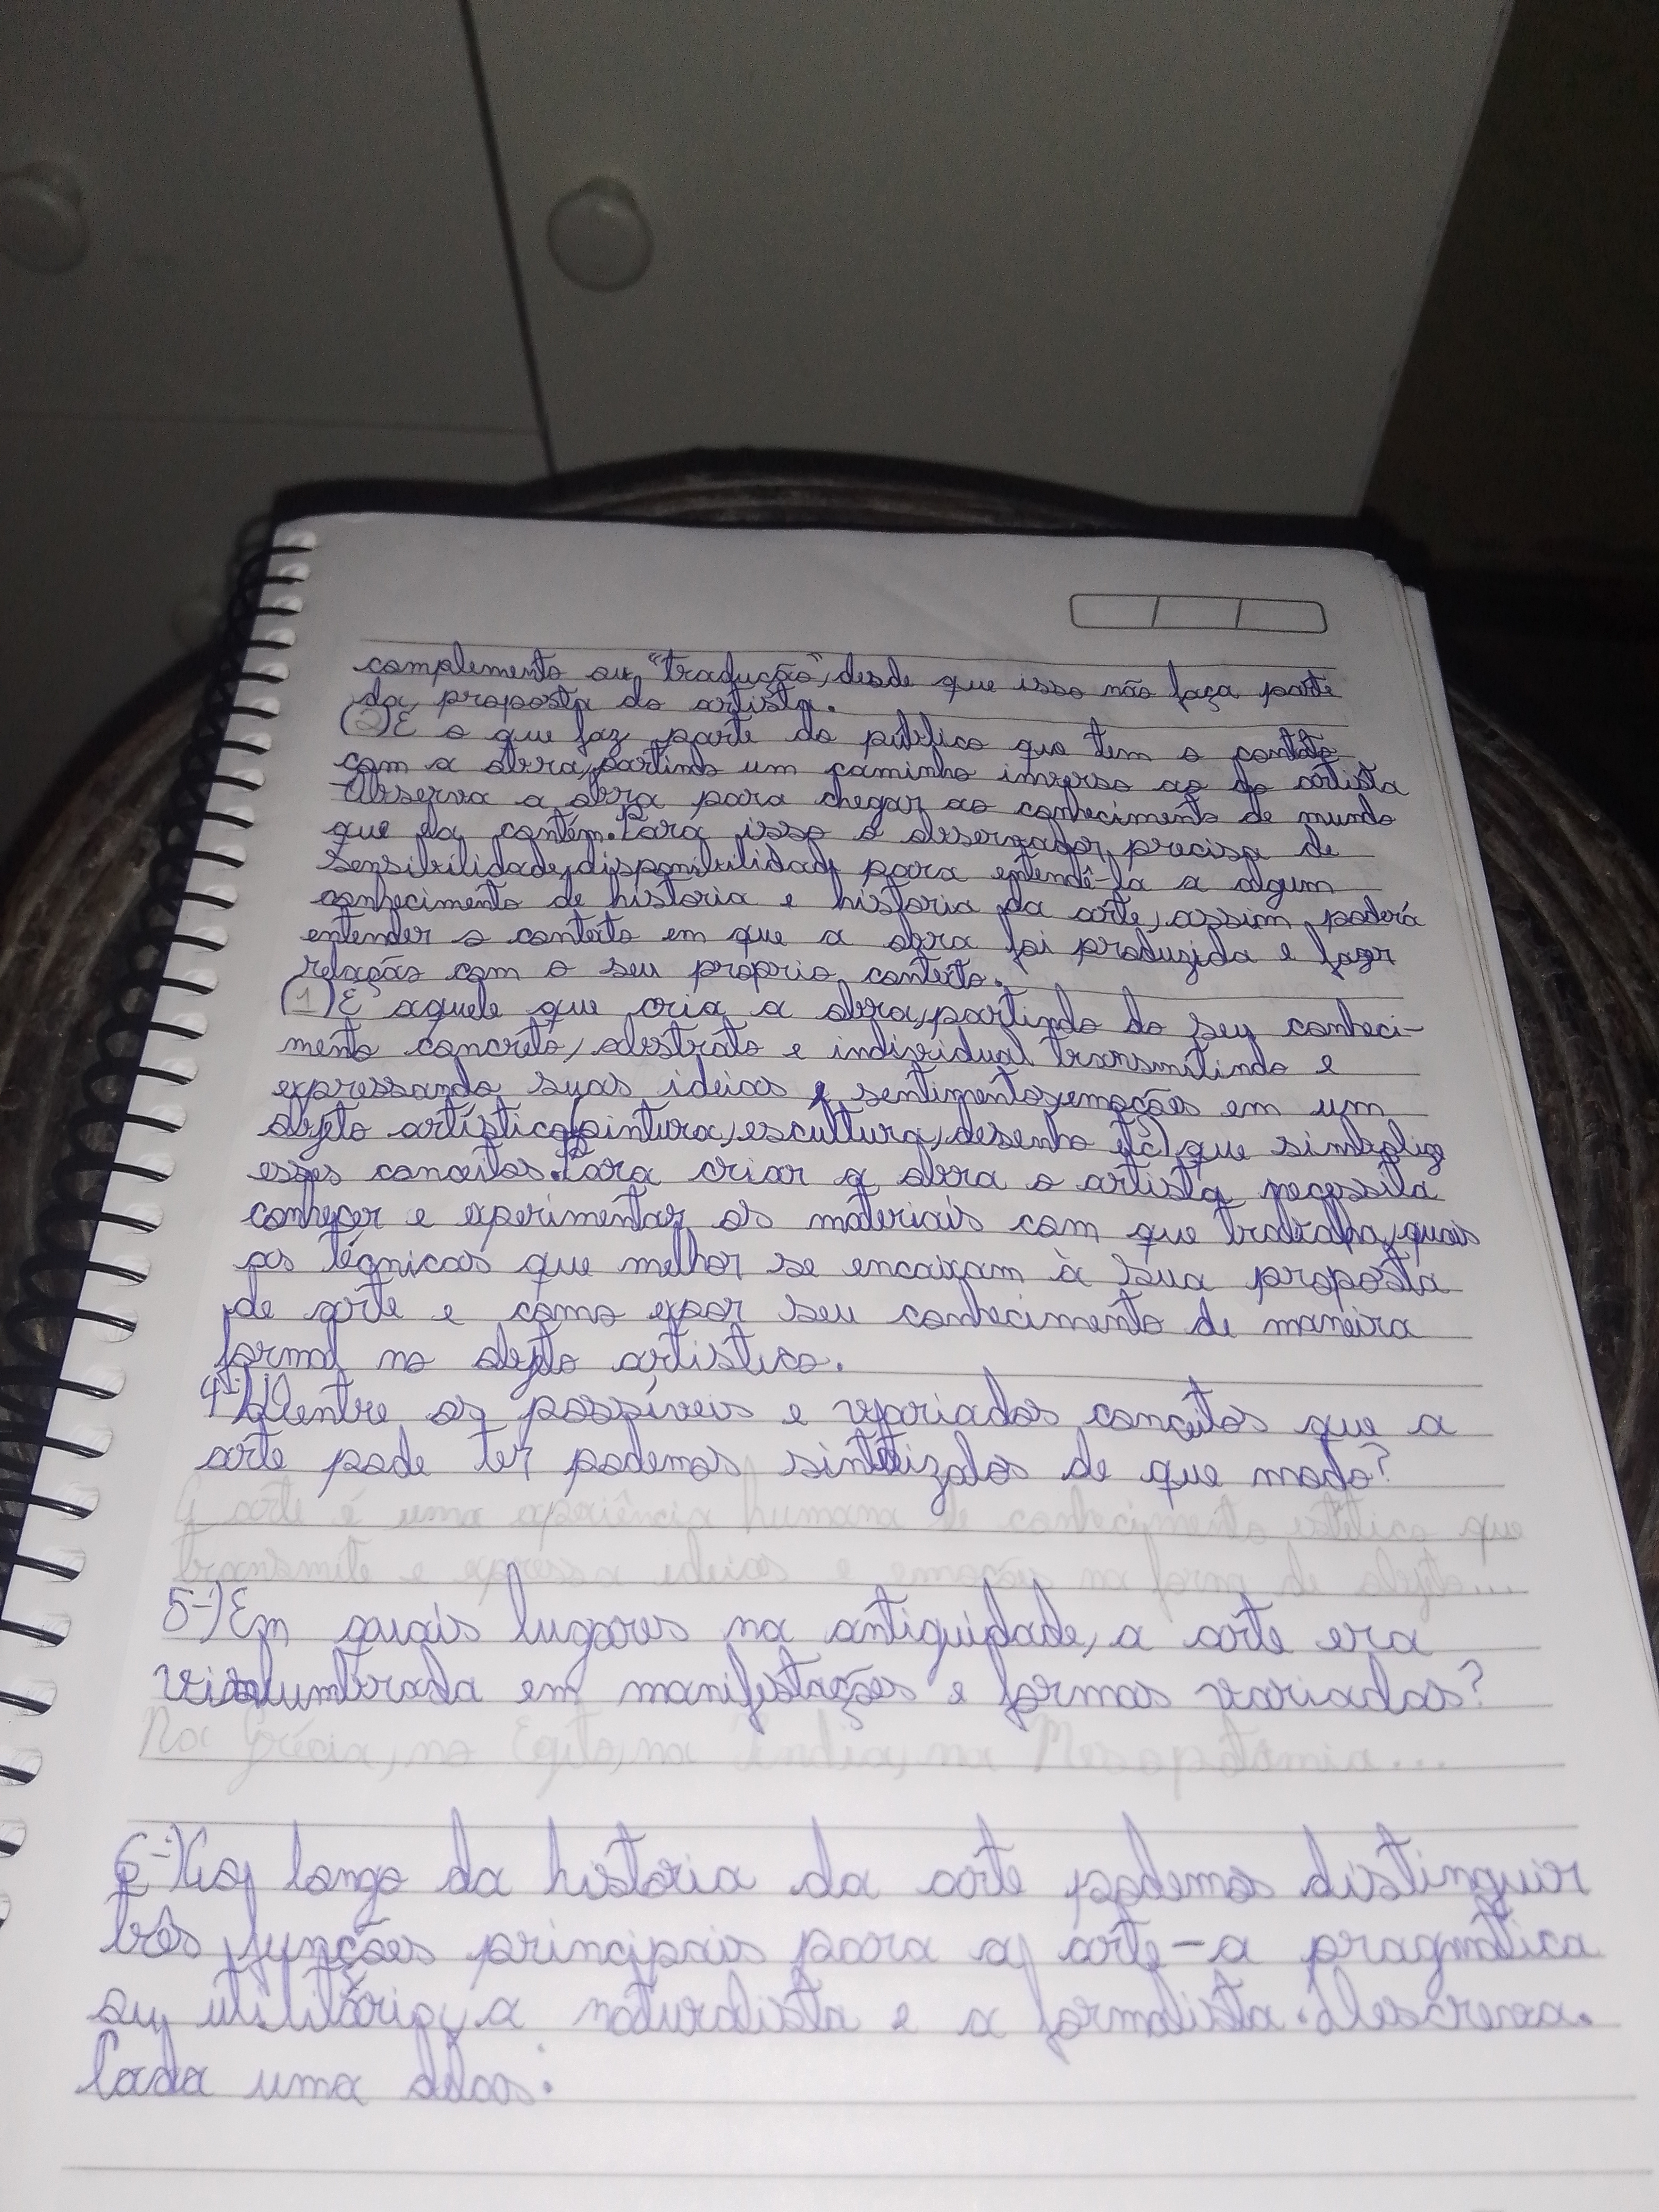 complemento ou "tradução", desde que isso não faça parte
da proposta do artista.
(2) É o que faz parte do público que tem o contato
com a obra, partindo um caminho inverso ao do artista
Observa a obra para chegar ao conhecimento de mundo
que ela contém. Para isso o observador precisa de
sensibilidade, disponibilidade para entendê-la a algum
conhecimento de história e história da arte, assim poderá
entender o contexto em que a obra foi produzida e fazer
relação com o seu próprio contexto.
(1) É aquele que cria a obra, partindo do seu conheci-
mento concreto, abstrato e individual transmitindo e
expressando suas ideias, sentimentos, emoções em um
objeto artístico (pintura, escultura, desenho etc) que simbolize
esses conceitos. Para criar a obra o artista necessita
conhecer e experimentar os materiais com que trabalha, quais
as técnicas que melhor se encaixam à sua proposta
de arte e como expor seu conhecimento de maneira
formal no objeto artístico.
4-) Dentre os possíveis e variados conceitos que a
arte pode ter podemos sintetizalos de que modo?
A arte é uma experiência humana de conhecimento estético que
transmite e expressa ideias e emoções na forma de objeto...
5-) Em quais lugares na antiguidade, a arte era
vislumbrada em manifestações e formas variadas?
Na Grécia, no Egito, na Índia, na Mesopotâmia...
6-) Ao longo da história da arte podemos distinguir
três funções principais para a arte - a pragmática
ou utilitária, a naturalista e a formalista. Descreva.
Cada uma delas.